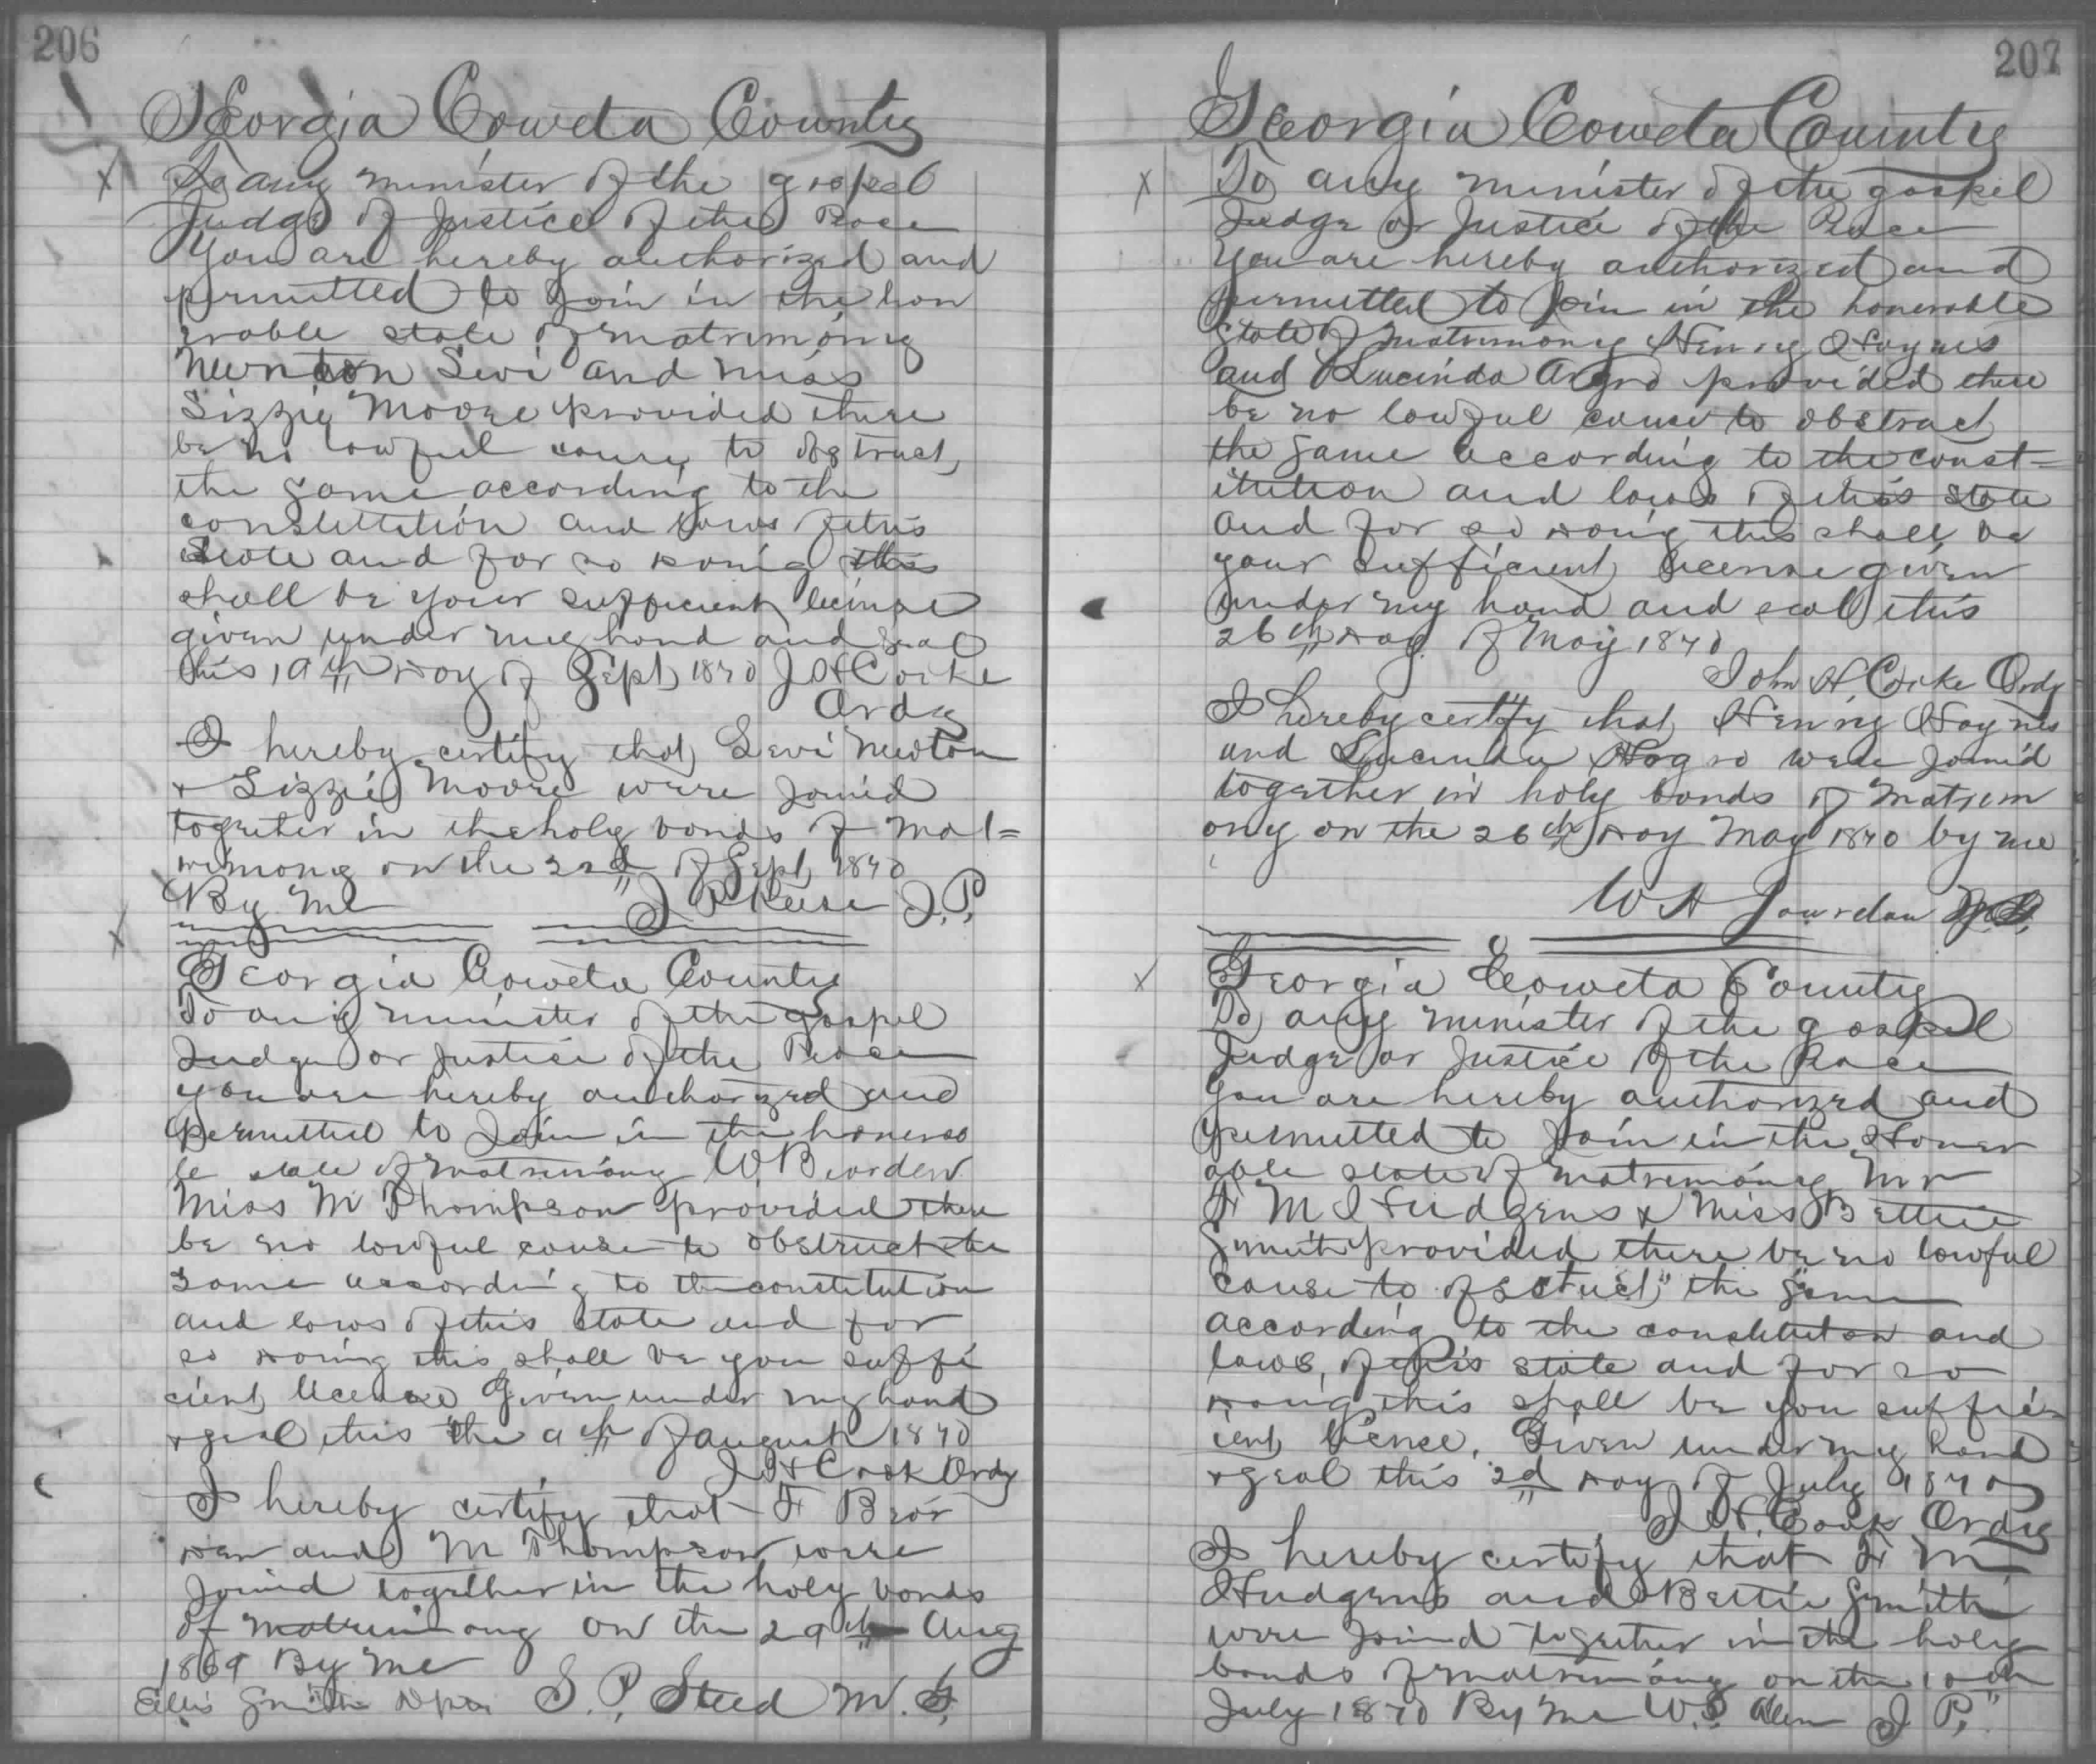 206
Georgia Coweta County
To any minister of the gospel
Judge of Justice of the Peace
You are hereby authorized and
permitted to join in the hon
erable state of matrimony
Newnton Levi and miss
Lizzie Moore provided there
be no lawful cause to obstruct
the same according to the
constitution and laws of this
State and for so doing this
shall be your sufficient license
given under my hand and seal
this 19th day of Sept 1870 J H Cooke
Ordy
I hereby certify that Levi Newton
& Lizzie Moore were joined
together in the holy bonds of mat=
rimony on the 22d of Sept 1870
By me J P Reese J.P.
Georgia Coweta County
To any minister of the gospel
Judge or Justice of the Peace
you are hereby authorized and
permitted to Join in the honerab
le state of matrimony W. Bearden
Miss M Thompson provided there
be no lawful cause to obstruct the
same according to the constitution
and laws of this state and for
so doing this shall be you suffi
cient license Given under my hand
& seal this the 9th of august 1870
J H Cook Ordy
I hereby certify that H Bear
den and M Thompson were
joined together in the holy bonds
of matrimony on the 29th Aug
1869 By me
Ellis Smith S. P. Steed M. G.
207
Georgia Coweta County
To any minister of the gospel
Judge or Justice of the Peace
You are hereby authorized and
permitted to join in the honerable
state of matrimony Henry Haynes
and Lucinda provided there
be no lawful cause to obstruct
the same according to the const=
itution and laws of this state
and for so doing this shall be
your sufficient license given
under my hand and seal this
26th day of May 1870
John H. Cooke Ordy
I hereby certify that Henry Haynes
and Lucinda were joined
together in holy bonds of matrim
ony on the 26th day May 1870 by me
W H Jourdan
Georgia Coweta County
To any minister of the gospel
Judge or Justice of the Peace
You are hereby authorized and
permitted to join in the Honer
able state of matrimony Mr
H M Hudgens & Miss Bettie
Smith provided there be no lawful
cause to obstruct the same
according to the constitution and
laws, of this state and for so
doing this shall be you suffic
ient license. Given under my hand
& seal this 2d day of July 1870
J H. Cook Ordy
I hereby certify that H M
Hudgens and Bettie Smith
were joined together in the holy
bonds of matrimony on the 10th
July 1870 By me W. S. Allen J P.